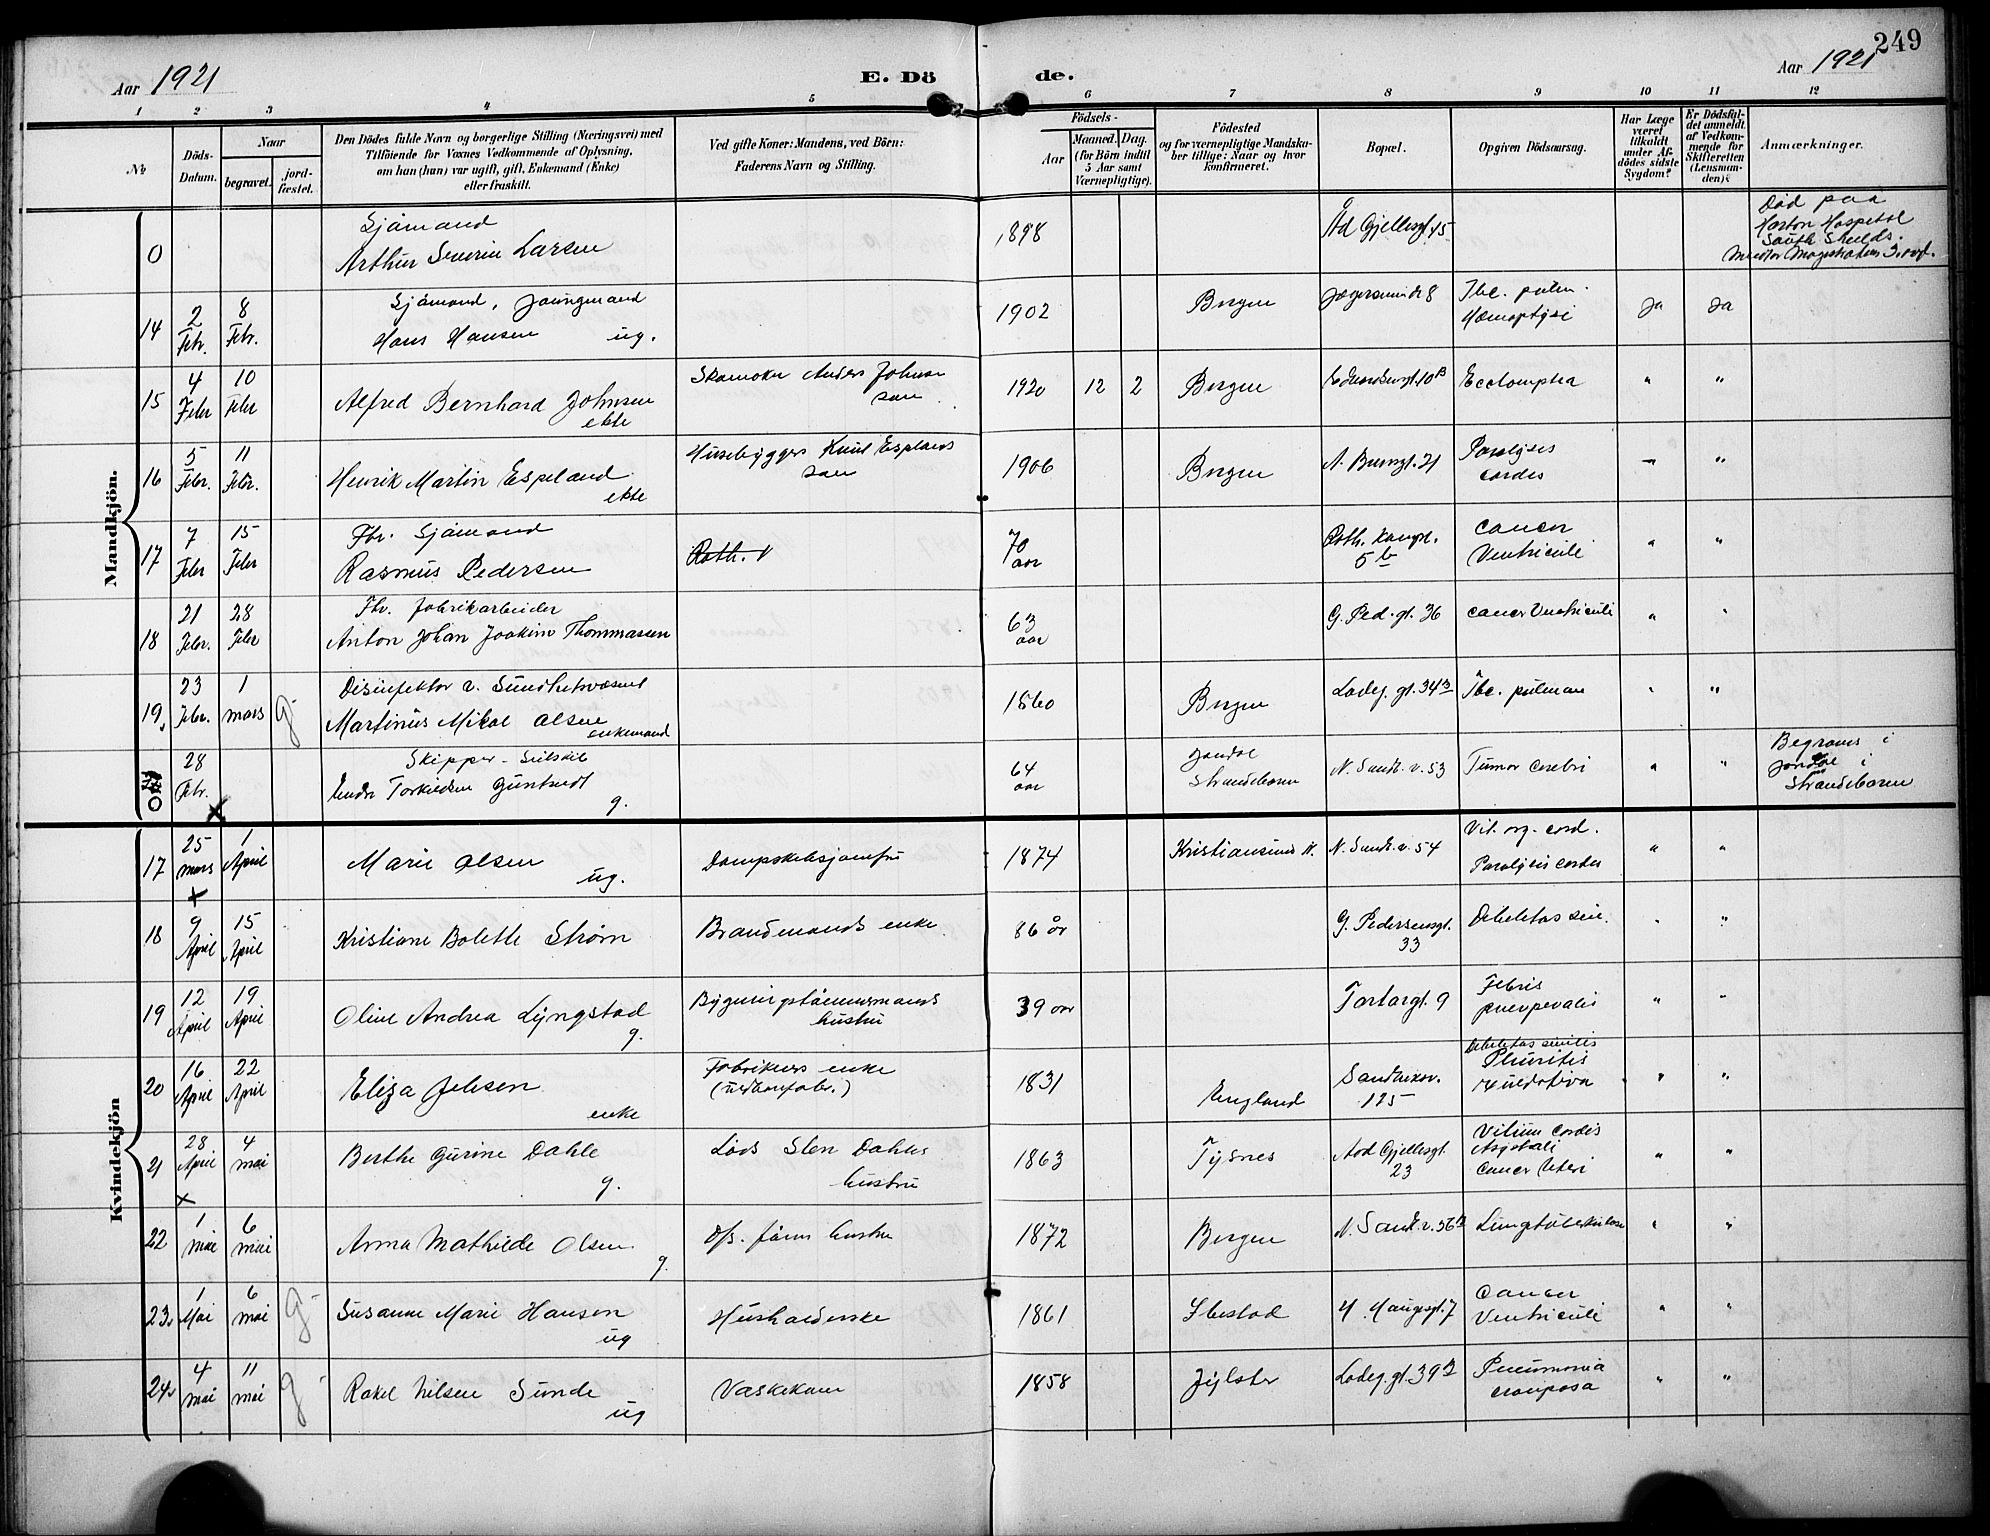 249
Aar 1921
E. Dö
de.
Aar 1921
1 2 3 4 5 6 7 8 9 10 11 12
Nr.
Döds-
Datum.
Naar
begravet.
jord-
fæstet.
Den Dödes fulde Navn og borgerlige Stilling (Næringsvei) med
Tilföiende for Voxnes Vedkommende af Oplysning,
om han (hun) var ugift, gift, Enkemand (Enke)
eller fraskilt.
Ved gifte Koner: Mandens, ved Börn:
Faderens Navn og Stilling.
Födsels-
Aar
Maaned. Dag.
(for Börn indtil
5 Aar samt
Værnepligtige).
Födested
og for værnepligtige Mandska-
ber tillige: Naar og hvor
konfirmeret.
Bopæl.
Opgiven Dödsaarsag.
Har Læge
været
tilkaldt
under Af-
dödes sidste
Sygdom?
Er Dödsfal-
det anmeldt
af Vedkom-
mende for
Skifteretten
(Lensman-
den)?
Anmærkninger.
Mandkjön.
0 Sjömand
Arthur Severin Larsen 1898 Ad Gjellesgt. 45
Död paa
Hospital
South Shields.
14 2 Febr. 8 Febr. Sjömand, Joungmand
Hans Hansen ug. 1902 Bergen 8 Tbc. pulm.
Hæmoptysi Ja Ja
15 4 Febr 10 Febr Alfred Bernhard Johnsen
ekte Anders Johnsen
sön 1920 12 2 Bergen Edvardsensgt. 10B Eclampsia " "
16 5 Febr. 11 Febr. Henrik Martin Espeland
ekte Husebygger Knut Espelands
sön 1906 Bergen N. Brunsgt. 21 Paralysis
cordis " "
17 7 Febr 15 Febr Fhv. Sjömand
Rasmus Pedersen Rath. 70
aar Rath. Kansgt.
5b Cancer
Ventriculi " "
18 21 Febr. 28 Febr Fhv. fabrikarbeider
Anton Johan Joakim Thommasen 63
aar G. Ped. gt. 36 Cancer Ventriculi " "
19 23 Febr. 1 mars g Disinfektor v. Sundhetsvæsent
Martinus Mikal Olsen
enkemand 1860 Bergen Ladeg. gt. 34 Tbc. pulman " "
28 Febr. X Skipper - Seilskib
Endre Torkildsen
g. 64
aar Jondal
Strandebarm N. Sandv. v. 53 Tumor Cerebri " " Begraves i
Jondal i
Strandebarm
Kvindekjön
17 25 mars 1 April Marie Olsen
ug. Dampskibsjomfru 1874 Kristiansund N. N. Sandv. v. 54 Vit. org. cord.
Paralysis cordis " "
X
18 9 April 15 April Kristiane Bolette Strøm Brandmands enke 86 år G. Pedersensgt.
33 Debilitas sen. " "
19 12 April 19 April Oline Andrea Lyngstad
g. Bygningstömmermands
hustru 39 aar Tartargt. 9 Febris
puerperalis " "
20 16 April 22 April Eliza Jebsen
enke Fabrikeiers enke
1831 England Sandviksv.
125 Debilitas senilis
Pleuritis
exudativa " "
21 28 April 4 mai Berthe Gurine Dahle
g. Lods Sten Dahles
hustru 1863 Tysnes Aad Gjellesgt.
23 Vitium Cordis
Asystoli
Cancer Uteri " "
X
22 1 mai 6 mai Anna Mathilde Olsen
g. hustru 1872 Bergen N. Sandv. v. 56 Lungetuberkulose " "
23 1 Mai 6 mai g Susanne Marie Hansen
ug Husholderske 1861 Ibestad H. Haugesgt. 7 Cancer
Ventriculi " "
24 4 mai 11 mai g Rakel Nilsen Sunde
ug Vaskekone 1858 Jölster Ladeg. gt. 39 Pneumonia
crouposa " "